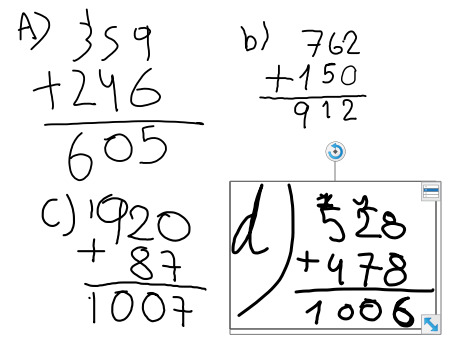 A) 359
+246
605
b) 762
+150
912
c) 920
+ 87
1007
d) 528
+478
1006